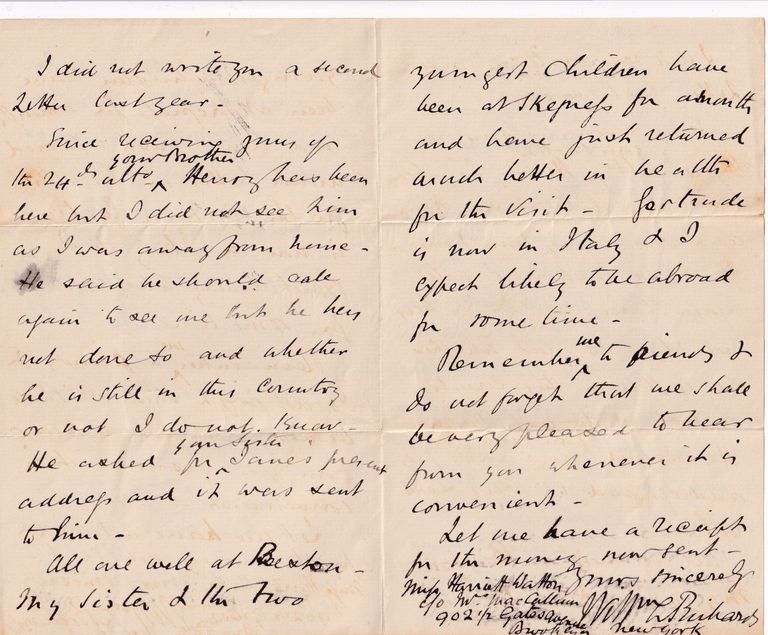 I did not write you a second
letter last year -
Since receiving yours of
your Brother
the 24th ulto ^ Henry has been
here but I did not see him
as I was away from home -
He said he should call
again to see me but he has
not done so and whether
he is still in this Country
or not I do not Know -
your Sister
He asked for ^ Janes present
address and it was sent
to him -
All are well at Beeston -
My Sister & the two
youngest Children have
been at Skegness for a month
and have just returned
much better in health
for the visit - Gertrude
is now in Italy & I
expect likely to be abroad
for some time -
me
Remember ^ to friends &
do not forget that we shall
be very pleased to hear
from you whenever it is
convenient -
Let me have a receipt
for the money now sent -
Yours sincerely
Richards
Miss Harriett Watton
c/o Mrs MacCallum
902 1/2 Gates Avenue
Brooklyn New York